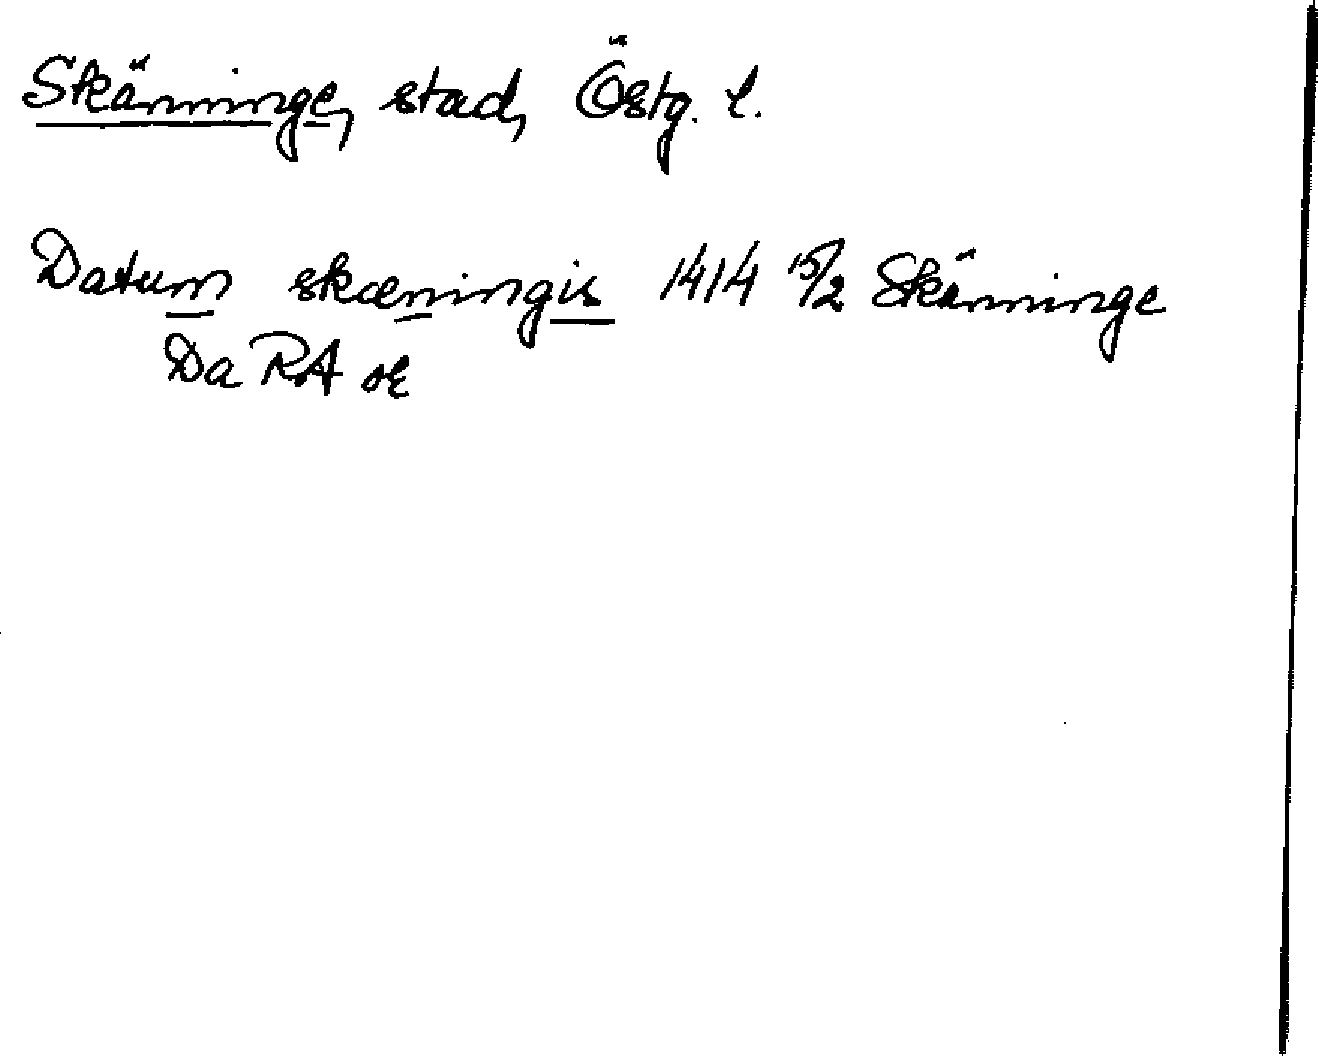 Skänninge, stad, Östg. l.
Datum skæningis 1414 15/2 Skänninge
Da RA or